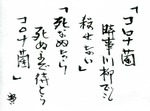 「コロナ菌
時事川柳で
殺せない」
「死なぬなら
死ぬまで待とう
コロナ菌」